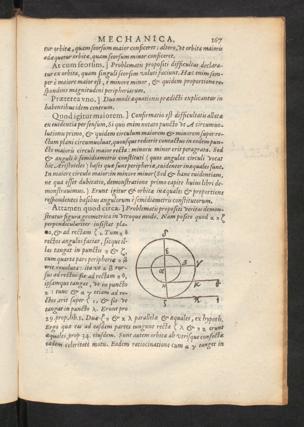 MECHANICA. 267
tur orbita, quam seorsum maior conficeret: altero, ut orbita maioris
adæquetur orbita, quam seorsum minor conficeret.
At cum seorsim. ] Problematis propositi difficultas declara-
tur ex orbita, quam singuli seorsim voluti faciunt. Hæc enim sem-
per à maiore maior est, à minore minor, & quidem proportione re-
spondens magnitudini peripheriarum.
Præterea vno. ] Duo modi æquationis prædicti explicantur in
habentibus idem centrum.
Quod igitur maiorem. ] Confirmatio est difficultatis allatæ
ex evidentia per sensum, si quo enim notato puncto
lutionis primo, & quidem circulum maiorem & minorem super re-
ctam plani circumvoluat, quousque redierit contactus in eadem pun-
cta maioris circuli maior recta: minoris minor erit peragrata. Sed
& anguli à semidiametris constituti ( quos angulos circuli vocat
hic Aristoteles) bases quæ sunt peripheriæ, evidenter inæquales sunt,
In maiore circulo maior in minore minor (Sed & hanc evidentiam,
ne qua esset dubitatio, demonstratione primo capite huius libri de-
monstravimus.) Erunt igitur & orbita inæquales & proportione
respondentes basibus angulorum à semidiametris constitutorum.
Attamen quod circa. ] Problematis propositi veritas demon-
stratur figura geometrica in utroque modo. Nam posito quod α β ζ
perpendiculariter insistat pla-
no, & ad rectam
rectos angulos faciat, sicque il-
las tangat in punctis
cum quarta pars peripheriæ
erit revoluta: ita ut α β rur-
sus ad rectas sit ad rectam
ipsamque tangat, ut in puncto
tunc & α γ etiam ad re-
ctos erit super & sic ut
tangat in puncto λ. Erunt pro
29. prop. lib. 1. Duæ parallelæ & æquales, ex hypoth.
Ergo quæ eas ad easdem partes iungunt rectæ erunt
æquales, prop. 34. eiusdem. Sunt autem orbitæ ab utrisque confectæ
eadem celeritate motus. Eadem ratiocinatione cum α γ tanget in